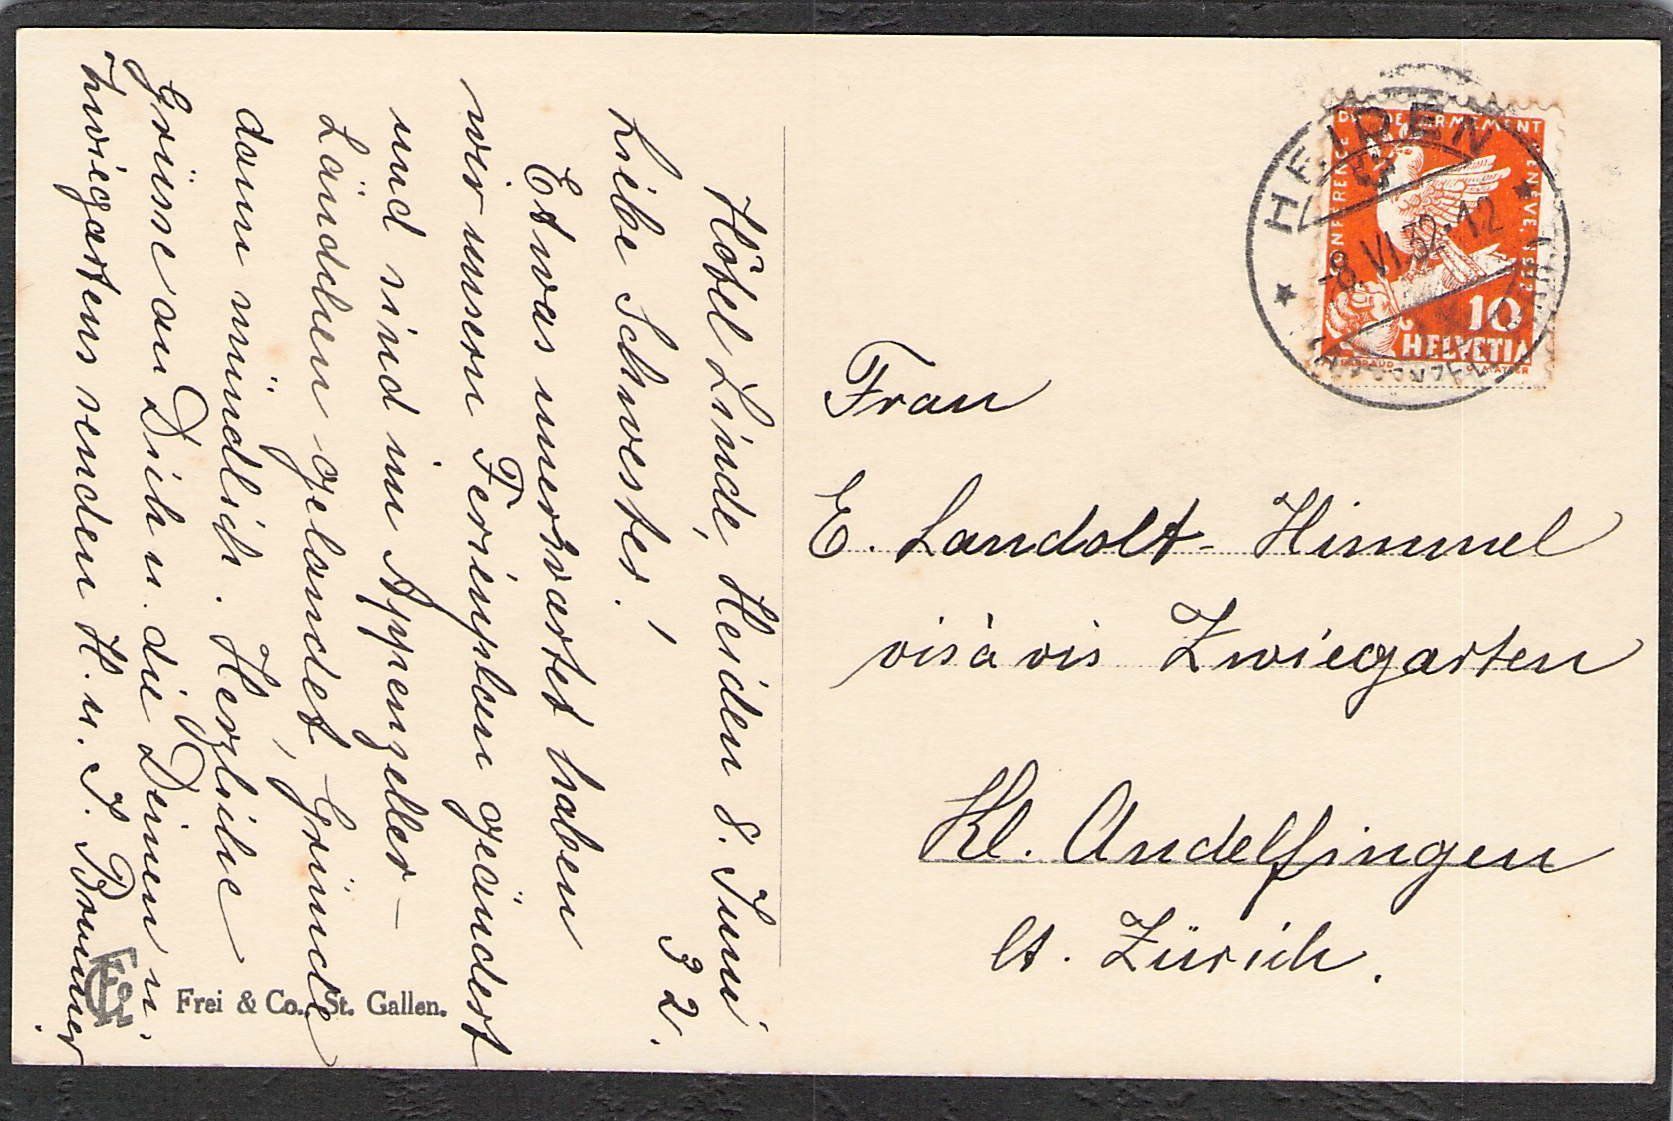 Hôtel Linde, Heiden 8. Juni
32.
Liebe Schwester!
Etwas unerwartet haben
wir unsern Ferienplan geändert
und sind im Appenzeller-
Ländchen gelandet, Gründe
dann mündlich. Herzliche
Grüsse an Dich u. die Deinen u.
Zwiegartens senden H. u. J. Brunner.
Frei & Co., St. Gallen.
Frau
E. Landolt-Himmel
visà vis Zwiegarten
Kl. Andelfingen
Ct. Zürich.
HEIDEN
-8.VI.32.-12
CONFERENCE DU DESARMEMENT GENEVE, 1932
10
HELVETIA